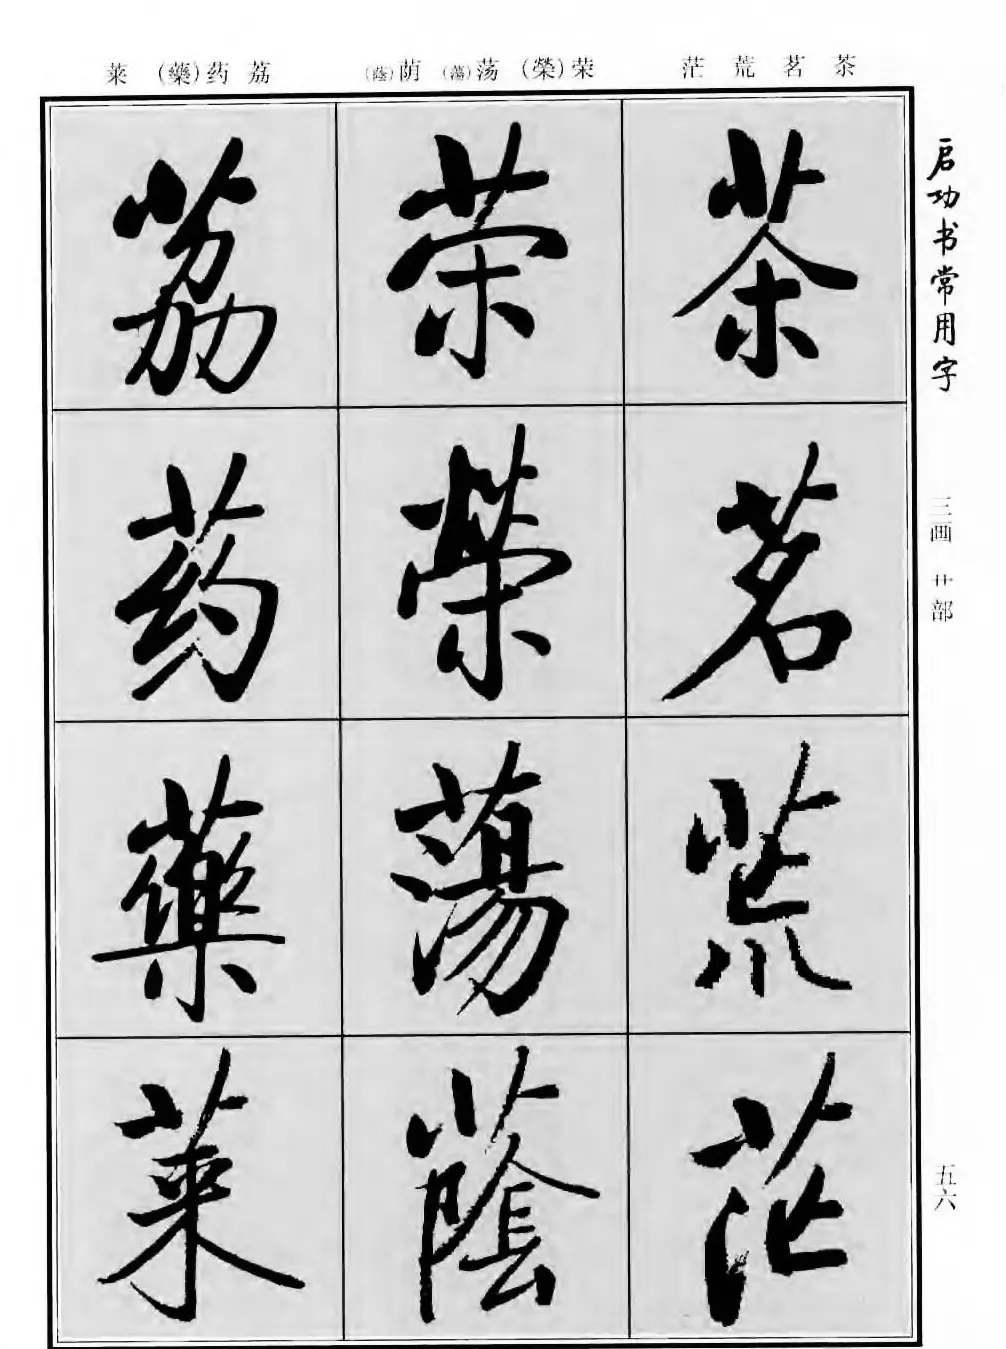 莱 (藥)药 荔 (蔭)荫 (蕩)荡 (榮)荣 茫 荒 茗 茶
启功书常用字
三画 艹部
五六
茶
茗
荒
茫
荣
榮
蕩
蔭
荔
药
藥
莱